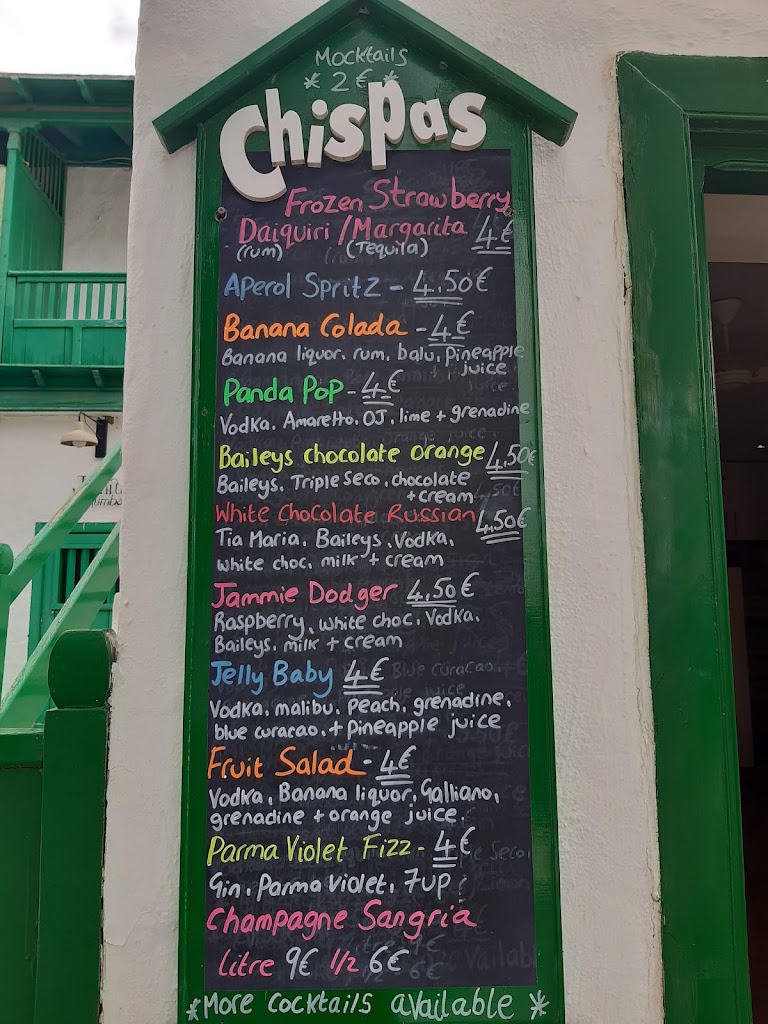 Mocktails
* 2€ *
Chispas
Frozen Strawberry
Daiquiri / Margarita 4€
(rum) (Tequila)
Aperol Spritz - 4.50€
Banana Colada - 4€
Banana liquor. rum. balu. Pineapple
juice
Panda Pop - 4€
Vodka. Amaretto. OJ. lime + grenadine
Baileys chocolate orange 4,50€
Baileys. Triple Seco. chocolate
+ cream
White Chocolate Russian 4,50€
Tia Maria. Baileys. Vodka.
white choc. milk + cream
Jammie Dodger 4,50€
Raspberry. white choc. Vodka.
Baileys. milk + cream
Jelly Baby 4€
Vodka. malibu. Peach. grenadine.
blue curacao. + Pineapple juice
Fruit Salad - 4€
Vodka. Banana liquor. Galliano,
grenadine + orange juice.
Parma Violet Fizz - 4€
Gin. Parma violet. 7up
Champagne Sangria
Litre 9€ 1/2 6€
*More cocktails available *